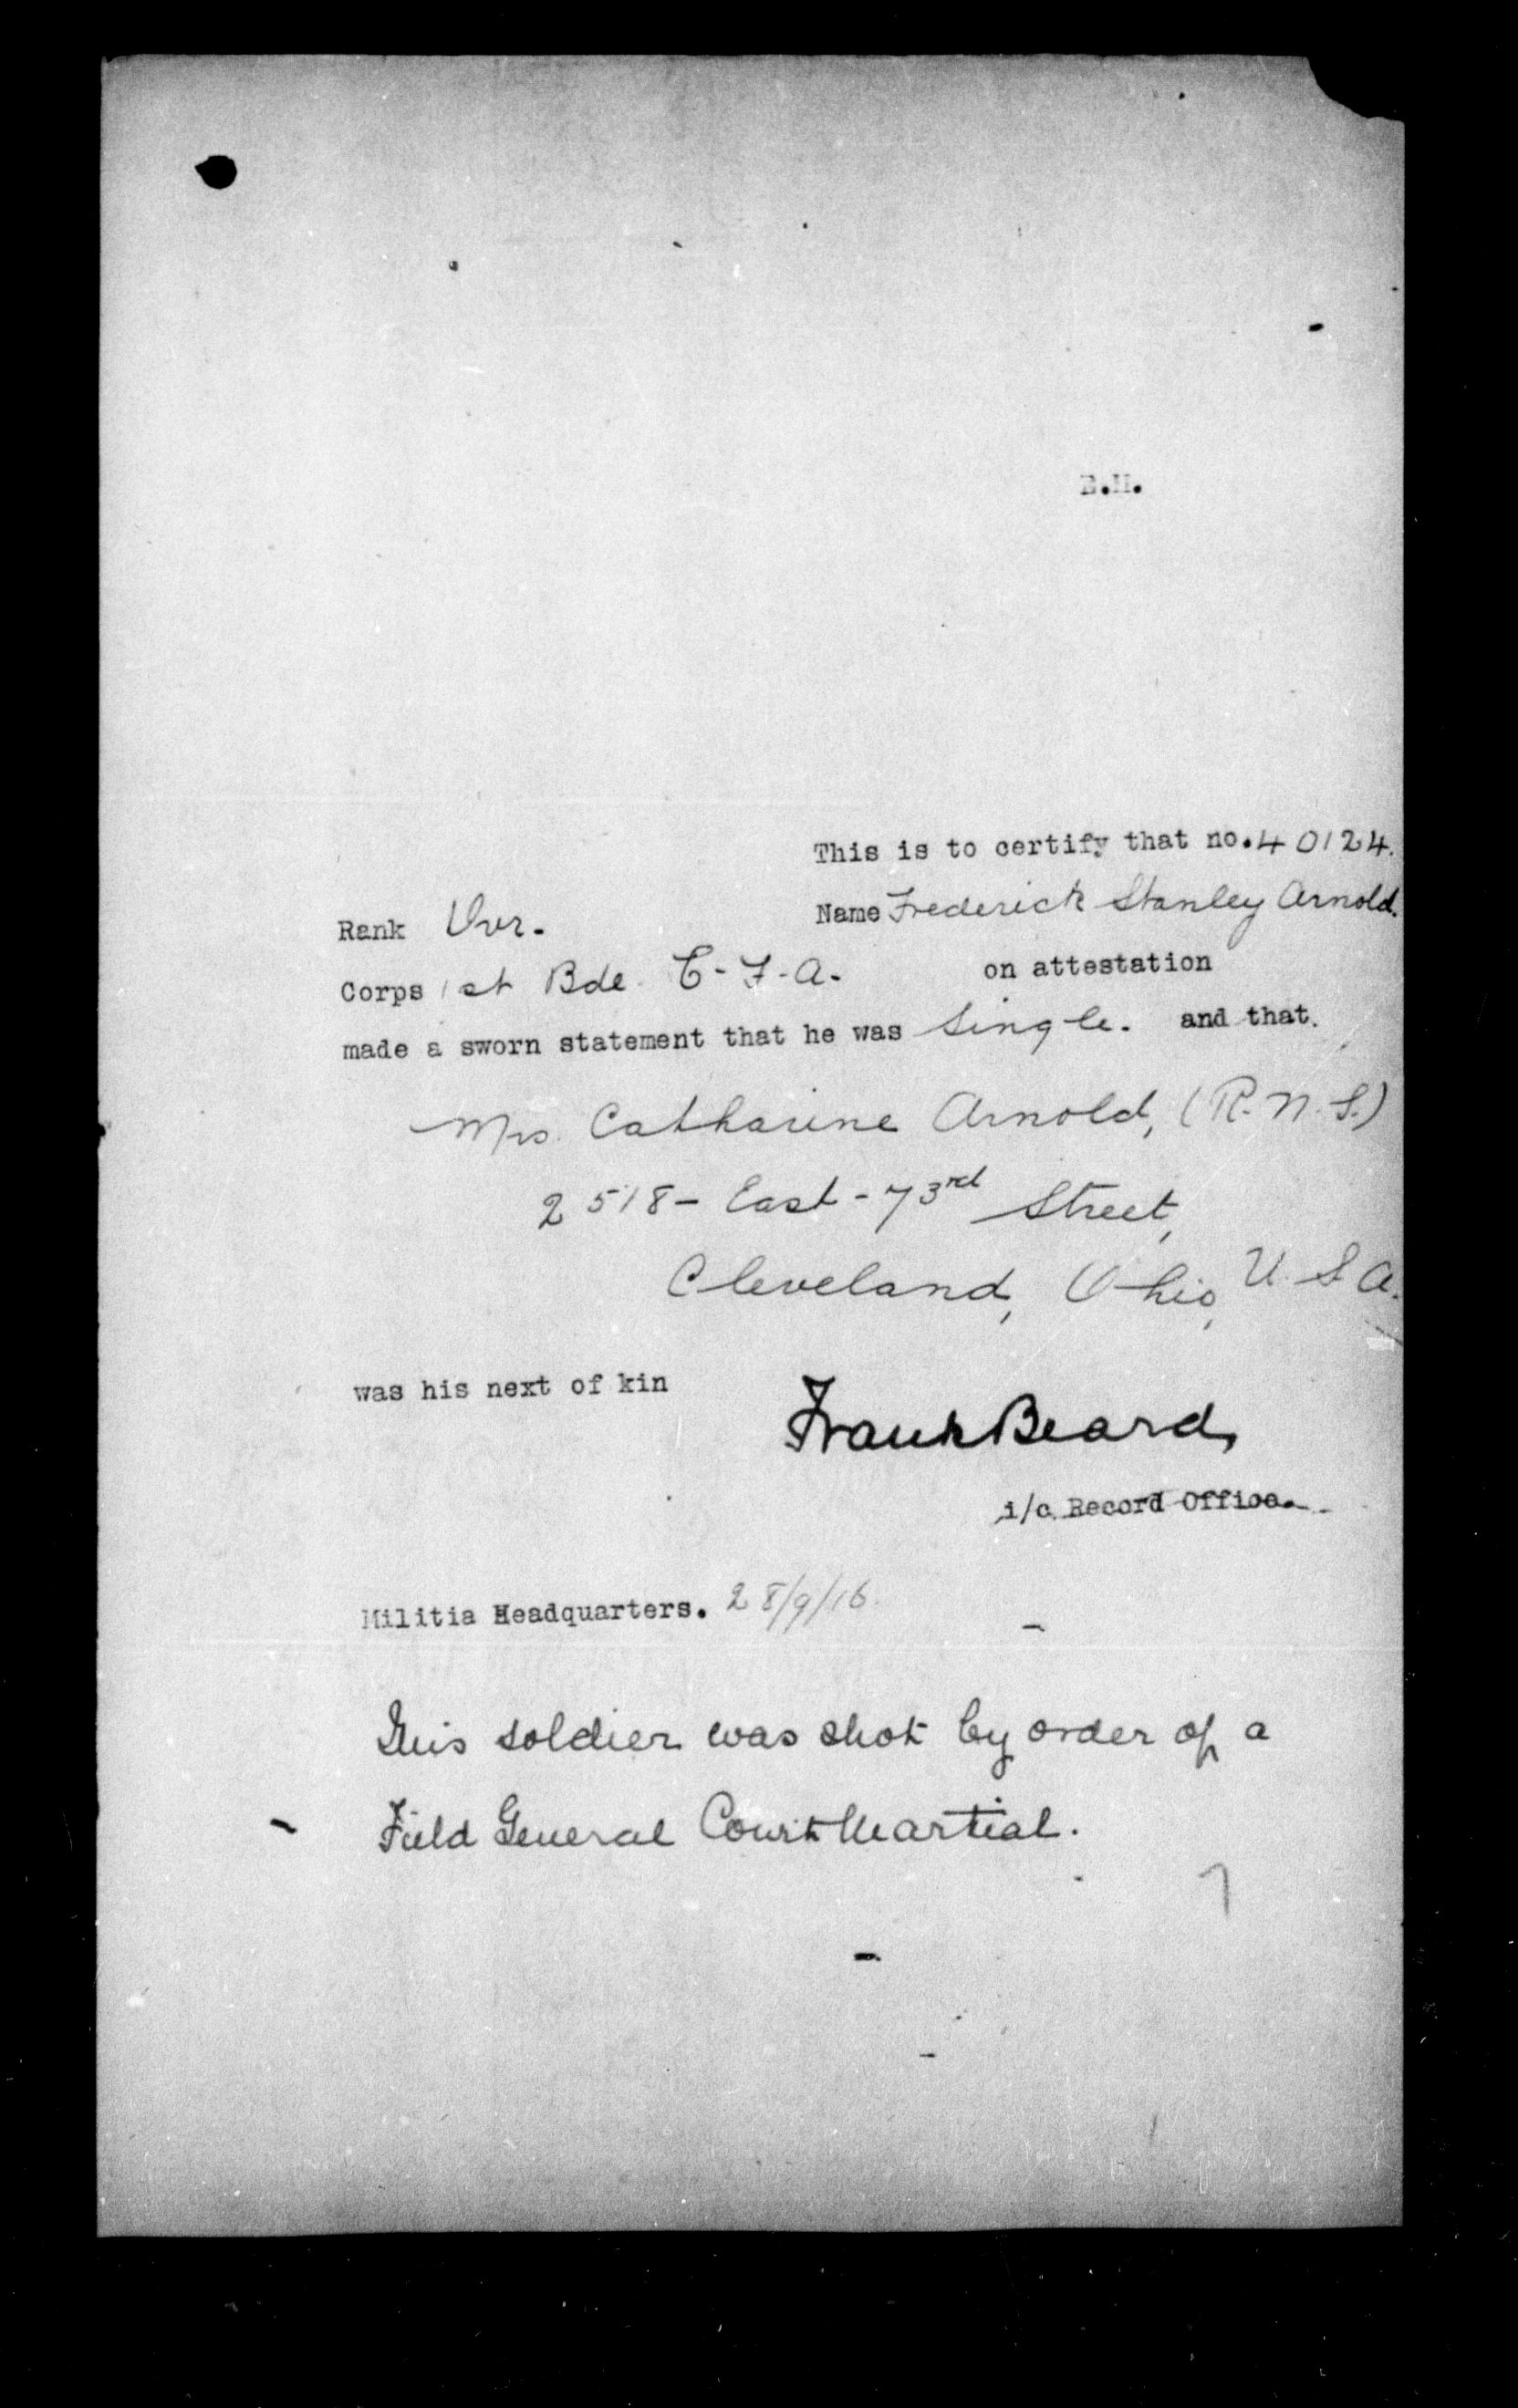 E.H.
This is to certify that no. 40124.
Rank Dvr. Name Frederick Stanley Arnold.
Corps 1st Bde. C-F-A. on attestation
made a sworn statement that he was Single. and that.
Mrs. Catharine Arnold, (R.N.S.)
2518 - East - 73rd Street,
Cleveland, Ohio, U.S.A.
was his next of kin
Frank Beard,
i/c Record Office.
Militia Headquarters. 28/9/16.
This soldier was shot by order of a
Field General Court Martial.
7